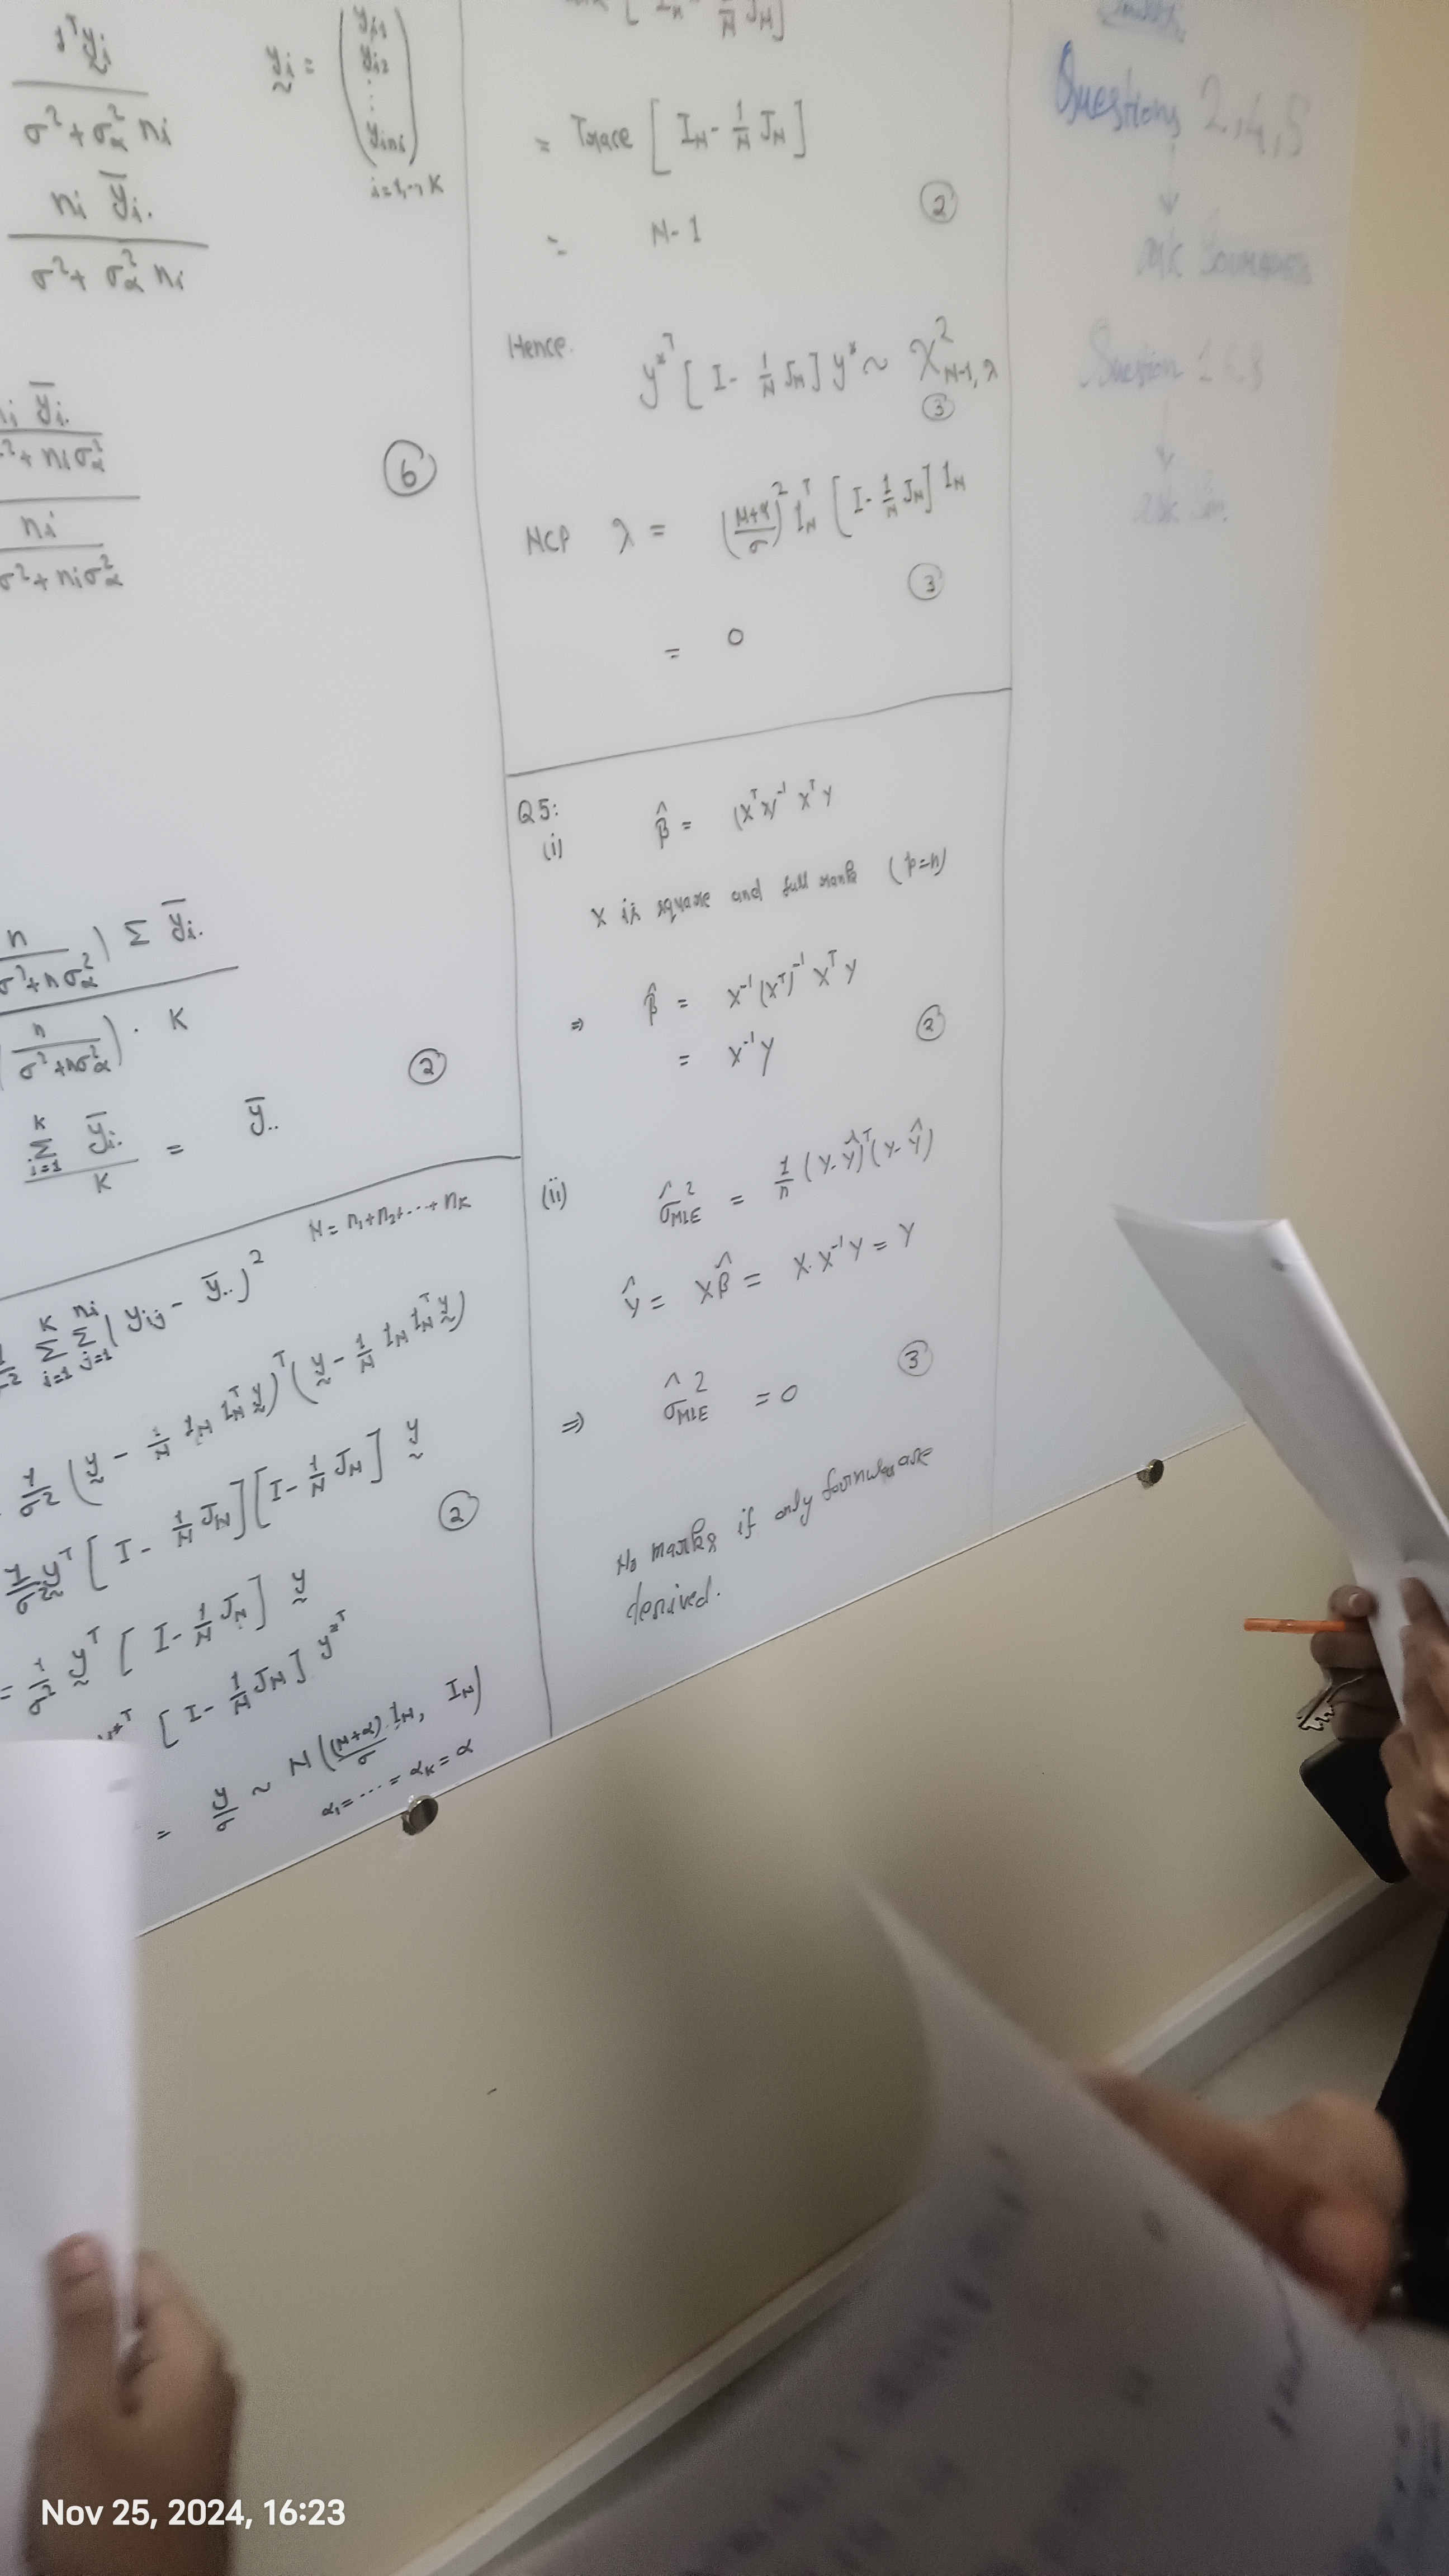 1ᵀ y̰ᵢ / σ² + σ²_α nᵢ
y̰ᵢ = ( yᵢ₁ yᵢ₂ ⋮ yᵢₙᵢ )
i=1,..,K
nᵢ ȳᵢ. / σ² + σ²_α nᵢ
nᵢ ȳᵢ. / σ² + nᵢσ²_α
nᵢ / σ² + nᵢσ²_α
⑥
( n / σ² + nσ²_α ) Σ ȳᵢ.
( n / σ² + nσ²_α ) . K
②
Σᵢ₌₁ᴷ ȳᵢ. / K = ȳ..
N = n₁+n₂+...+n_K
Σᵢ₌₁ᴷ Σⱼ₌₁ⁿⁱ ( yᵢⱼ - ȳ.. )²
1/σ² ( y̰ - 1/N 1_N 1_Nᵀ y̰ )ᵀ ( y̰ - 1/N 1_N 1_Nᵀ y̰ )
1/σ² y̰ᵀ [ I - 1/N J_N ] [ I - 1/N J_N ] y̰
②
= 1/σ² y̰ᵀ [ I - 1/N J_N ] y̰
y*ᵀ [ I - 1/N J_N ] y*ᵀ
= y̰/σ ~ N ( (μ+α)/σ . 1_N, I_N )
α₁ = ... = α_K = α
[ I_N - 1/N J_N ]
= Trace [ I_N - 1/N J_N ]
= N-1
②
Hence. y*ᵀ [ I - 1/N J_N ] y* ~ χ²_N-1, λ
③
NCP λ = ( μ+α / σ )² 1_Nᵀ [ I - 1/N J_N ] 1_N
③
= 0
Q5:
(i) β̂ = (XᵀX)⁻¹ XᵀY
X is square and full rank (p=n)
⇒ β̂ = X⁻¹ (Xᵀ)⁻¹ XᵀY
= X⁻¹Y
②
(ii) σ̂²_MLE = 1/n (Y-Ŷ)ᵀ (Y-Ŷ)
Ŷ = Xβ̂ = X.X⁻¹Y = Y
③
⇒ σ̂²_MLE = 0
No marks if only formulas are
derived.
Questions 2,4,5
↓
ask Yourselves
Question 1 & 3
↓
ask Sir.
Nov 25, 2024, 16:23